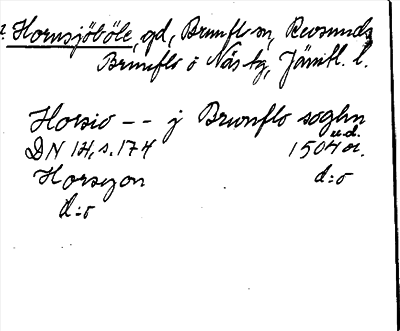 Hornsjöböle, gd, Brunflo sn, Revsunds
Brunflo o Näs tg, Jämtl. l.
Horsio -- j Brunflo soghn
DN 14, s. 174 1504 u.d. or.
Horsyon d:o
d:o